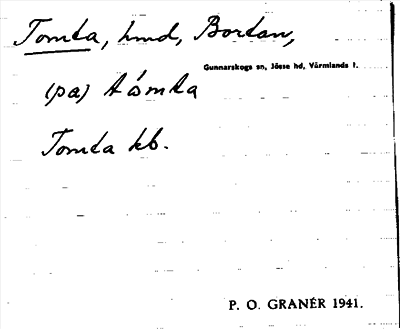 Tomta, hmd, Bortan,
Gunnarskogs sn, Jösse hd, Värmlands l.
(pa) tòmta
Tomta kb.
P. O. GRANÉR 1941.